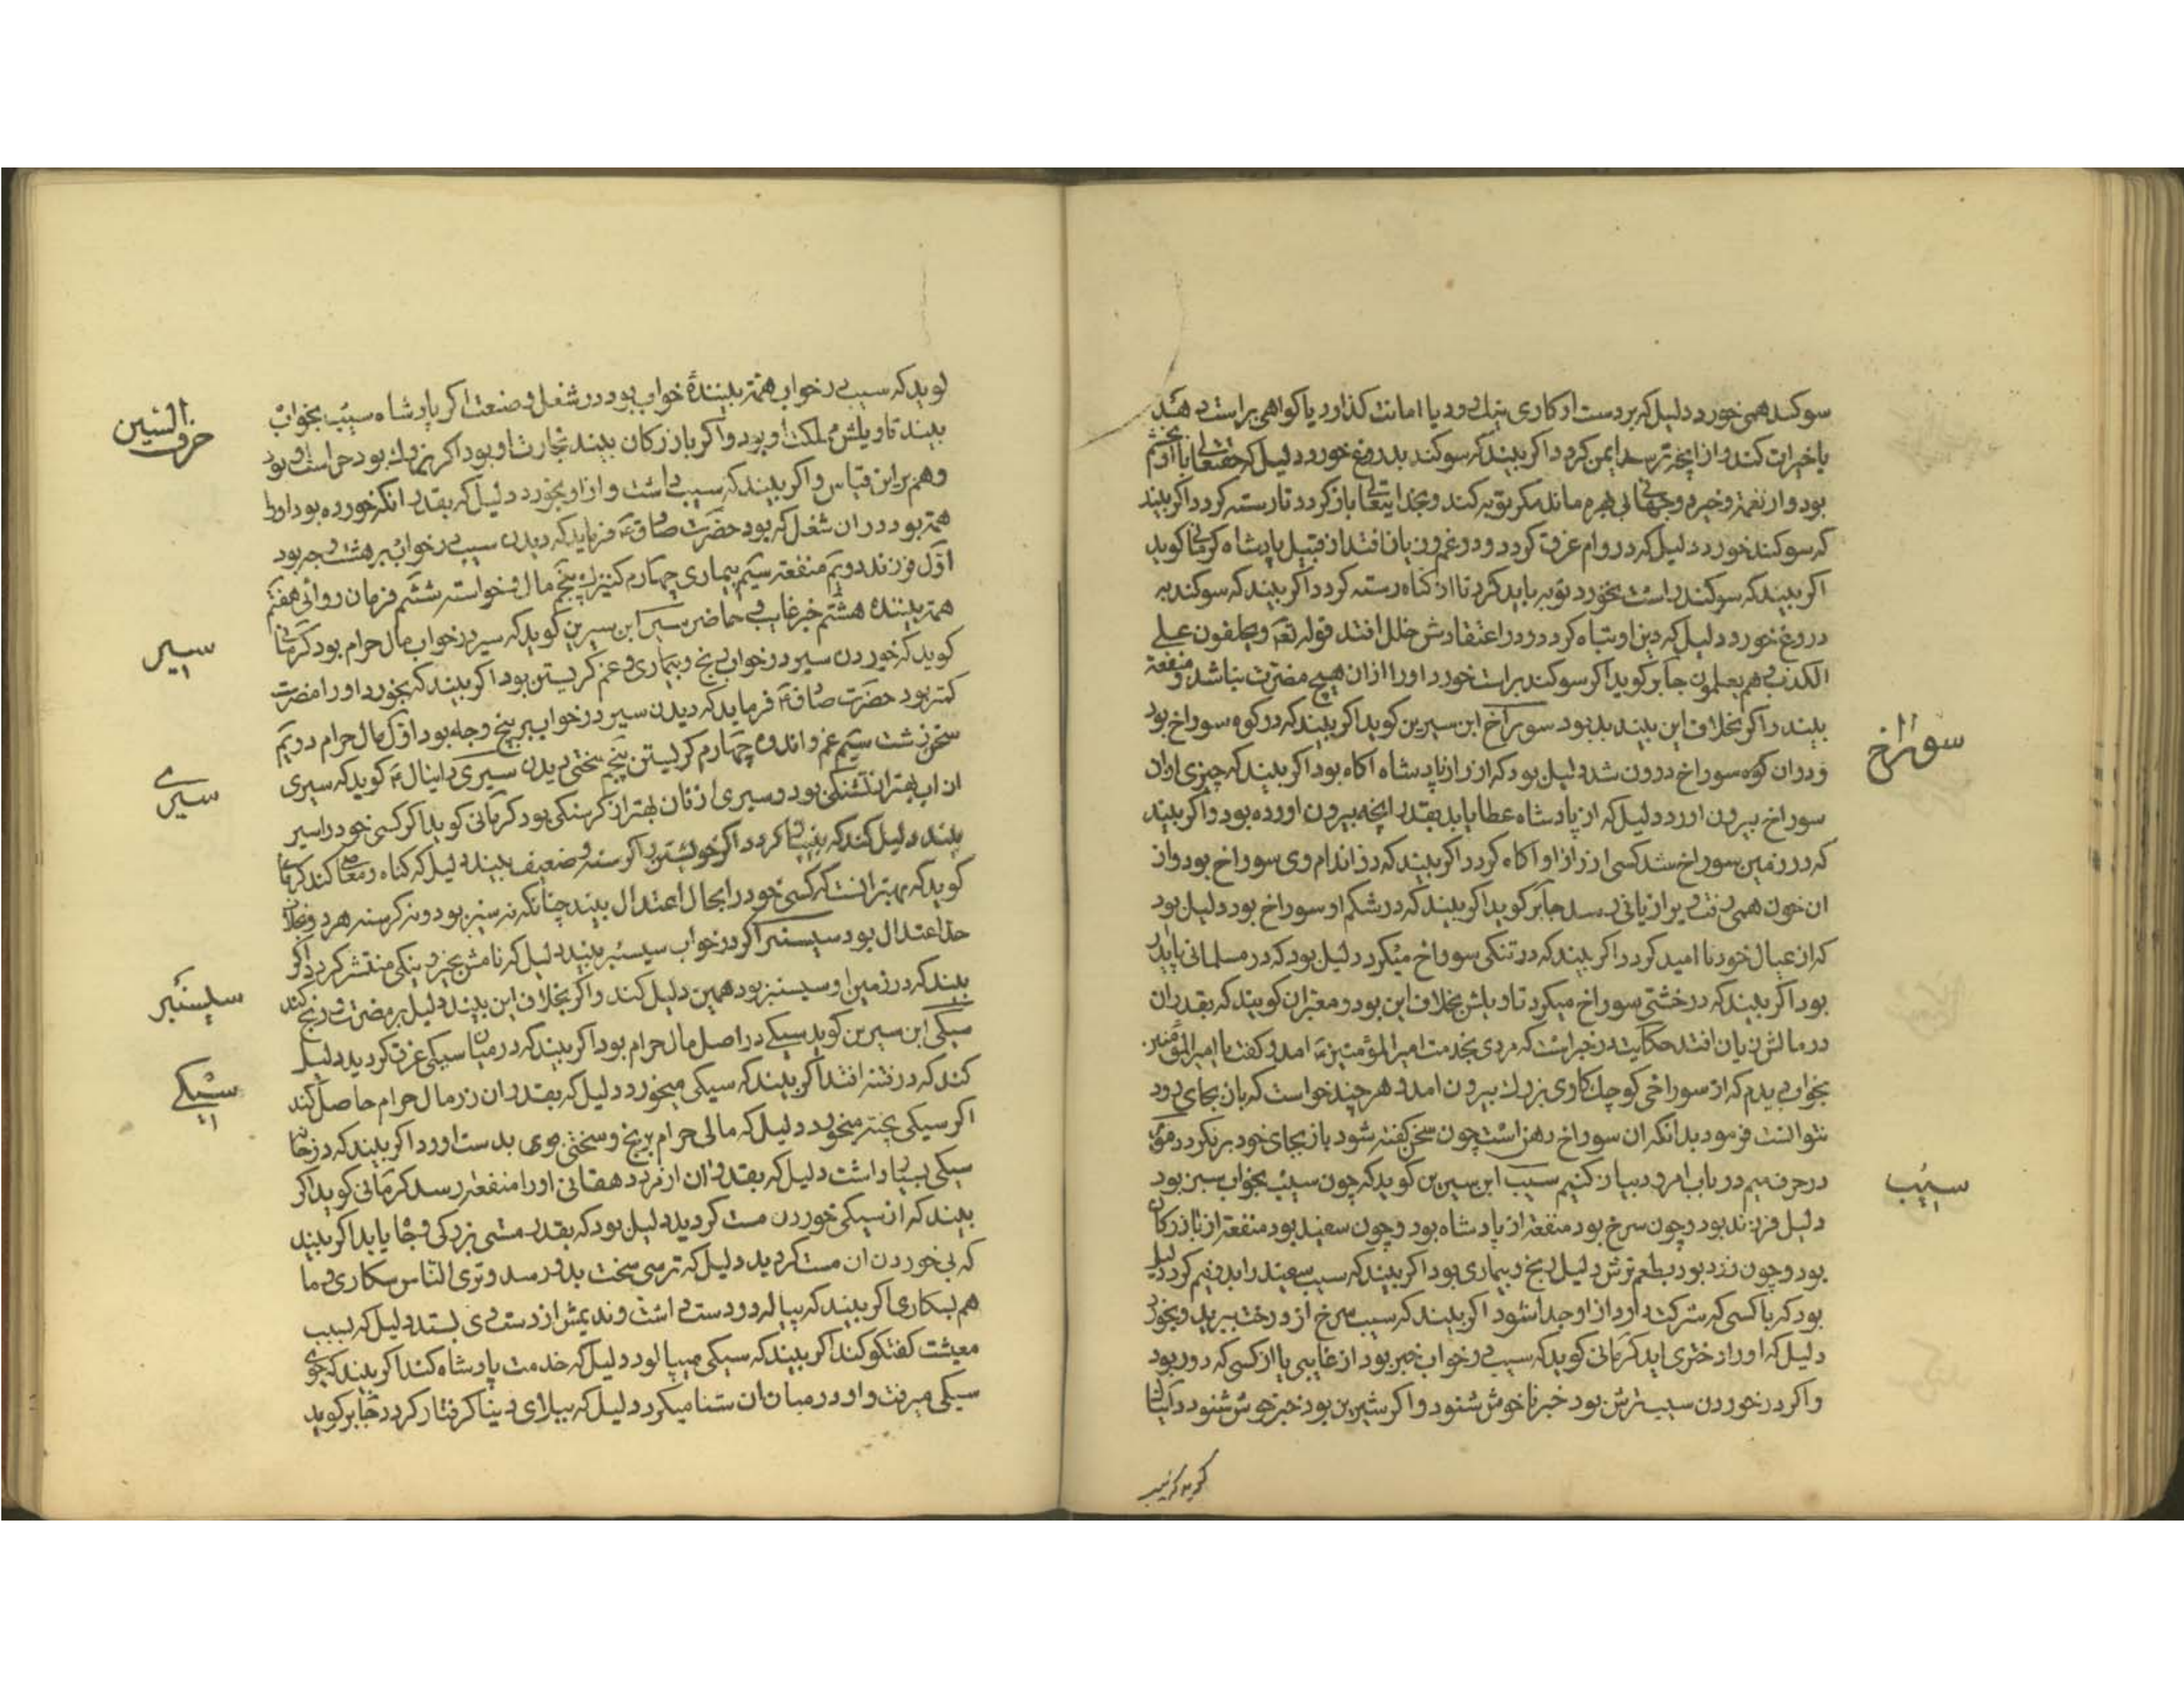 سوکند همی خورد دلیل که بر دست او کاری نیك رود یا امانت کذارد یا کواهی براستی دهد
یا خیرات کند و از انچه ترسد ایمن کردد اکر بیند که سوکند بدروغ خورد دلیل که حقتعالی با او بخشم
بود و از نعمة و خیر دوجهانی بی بهره ماند مکر توبه کند و بخدایتعالی باز کردد تا رسته کردد اکر بیند
که سوکند خورد دلیل که در وام غرق کردد و در غم و زیان افتد از قبیل پادشاه کرمانی کوید
اکر بیند که سوکند براست بخورد توبه باید کرد تا از کناه رسته کردد اکر بیند که سوکند به
دروغ خورد دلیل که دین او تباه کردد و در اعتقادش خلل افتد قوله تعه و یحلفون علی
الکذب و هم یعلمون جابر کوید اکر سوکند براست خورد او را از آن هیچ مضرت نباشد و منفعة
بیند و اکر بخلاف این بیند بد بود سوراخ ابن سیرین کوید اکر بیند که در کوه سوراخ بود
و در ان کوه سوراخ درون شد دلیل بود که از راز پادشاه اکاه بود اکر بیند که چیزی از ان
سوراخ بیرون اورد دلیل که از پادشاه عطا یابد بقدر انچه بیرون اورده بود و اکر بیند
که در زمین سوراخ شد کسی از راز او آکاه کردد اکر بیند که در اندام وی سوراخ بود و از
ان خون همی رفت ویرا زیانی رسد جابر کوید اکر بیند که در شکم او سوراخ بود دلیل بود
که از عیال خود نا امید کردد اکر بیند که در تنکی سوراخ میکرد دلیل بود که در مسلمانی پایدار
بود اکر بیند که در خشتی سوراخ میکرد تاویلش بخلاف این بود و معبران کویند که بقدر ان
در مالش زیان افتد حکایت در خبر است که مردی بخدمت امیر المؤمنین ع امد و کفت یا امیر المؤمنین
بخواب دیدم که از سوراخی کوچك کاوی بزرك بیرون امد و هر چند خواست که بان بجای رود
نتوانست فرمود بدانکه ان سوراخ دهن است چون سخن کفته شود باز بجای خود بر نکردد
در حرف میم در باب امرود بیان کنیم سیب ابن سیرین کوید که چون سیب بخواب سبز بود
دلیل فرزند بود و چون سرخ بود منفعة از پادشاه بود و چون سفید بود منفعة از بازرکان
بود و چون زرد بود و بطعم ترش دلیل رنج و بیماری بود اکر بیند که سیب سفید را بدو نیم کرد دلیل
بود که با کسی که شرکت دارد از او جدا شود اکر بیند که سیب سرخ از درخت ببرید و بخورد
دلیل که او را دختری اید کرمانی کوید که سیب در خواب خبر بود از غایبی یا از کسی که دور بود
و اکر در خوردن سیب ترش بود خبر ناخوش شنود و اکر شیرین بود خبر خوش شنود
سوراخ
سیب
کوید که سیب
حرف السین
کوید که سیب در خواب همة بینندۀ خواب بود در شغل و صنعت اکر پادشاه سیب بخواب
بیند تاویلش مملکت او بود و اکر بازرکان بیند تجارت او بود اکر بزرك بود حراست او بود
و هم بر این قیاس و اکر بیند که سیب داشت و از او بخورد دلیل که بقدر انکه خورده بود او را
همة بود در ان شغل که بود حضرت صادق ع فرماید که دیدن سیب در خواب بر هشت وجه بود
اول فرزند دویم منفعة سیم بیماری چهارم کنیزك پنجم مال و خواسته ششم فرمان روائی هفتم
همة بیننده هشتم خبر غایب و حاضر سیر ابن سیرین کوید که سیر در خواب مال حرام بود کرمانی
کوید که خوردن سیر در خواب رنج و بیماری و غم کریستن بود اکر بیند که بخورد او را مضرت
کمتر بود حضرت صادق ع فرماید که دیدن سیر در خواب بر پنج وجه بود اول مال حرام دویم
سخن زشت سیم غم و اندوه چهارم کریستن پنجم سختی دیدن سیری دانیال ع کوید که سیری
از اب بهتر از تشنکی بود و سیری از نان بهتر از کرسنکی بود کرمانی کوید اکر کسی خود را سیر
بیند دلیل کند که بینیاز کردد اکر خویشتن را کرسنه و ضعیف بیند دلیل که کناه و معاصی کند کرمانی
کوید که بهتر انست که کسی خود را بحال اعتدال بیند چنانکه نه سیر بود و نه کرسنه
حد اعتدال بود سیسنبر اکر در خواب سیسنبر بیند دلیل که نامش بخیر و نیکی منتشر کردد و اکر
بیند که در زمین او سیسنبر بود همین دلیل کند و اکر بخلاف این بیند دلیل بر مضرت و رنج کند
سیکی ابن سیرین کوید سیکی در اصل مال حرام بود اکر بیند که در میان سیکی غرق کردید دلیل
کند که در فتنه افتد اکر بیند که سیکی میخورد دلیل که بقدر ان زر مال حرام حاصل کند
اکر سیکی پخته میخورد دلیل که مالی حرام برنج و سختی بدست اورد اکر بیند که در خانه
سیکی بسیار داشت دلیل که بقدر ان از مرد دهقانی او را منفعة رسد کرمانی کوید اکر
بیند که از سیکی خوردن مست کردید دلیل بود که بقدر مستی بزرکی و جاه یابد اکر بیند
که بی خوردن ان مست کردید دلیل که ترسی سخت بدو رسد و تری الناس سکاری و ما
هم بسکاری اکر بیند که پیاله در دست داشت و ندیمش از دست وی بستد دلیل که بسبب
معیشت کفتکو کند اکر بیند که سیکی میپالود دلیل که خدمت پادشاه کند اکر بیند که جوی
سیکی میرفت و او در میان ان شنا میکرد دلیل که ببلای دنیا کرفتار کردد جابر کوید
سیر
سیری
سیسنبر
سیکی